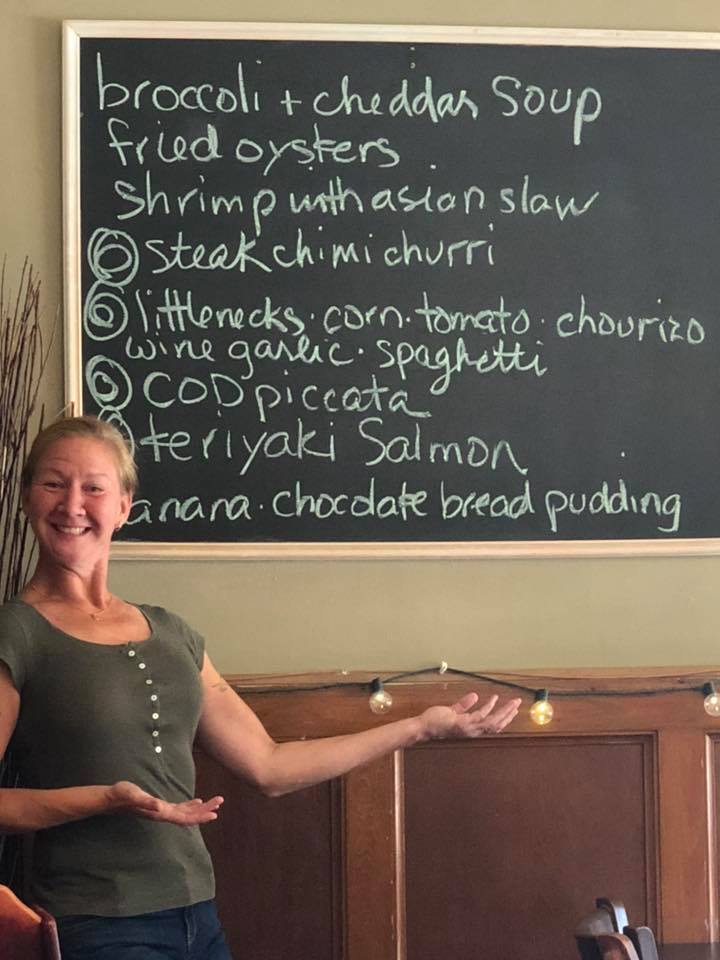 broccoli + cheddar soup
fried oysters
shrimp with asian slaw
steak chimichurri
littlenecks · corn · tomato · chourizo
wine garlic · spaghetti
COD piccata
teriyaki Salmon
anana · chocolate bread pudding